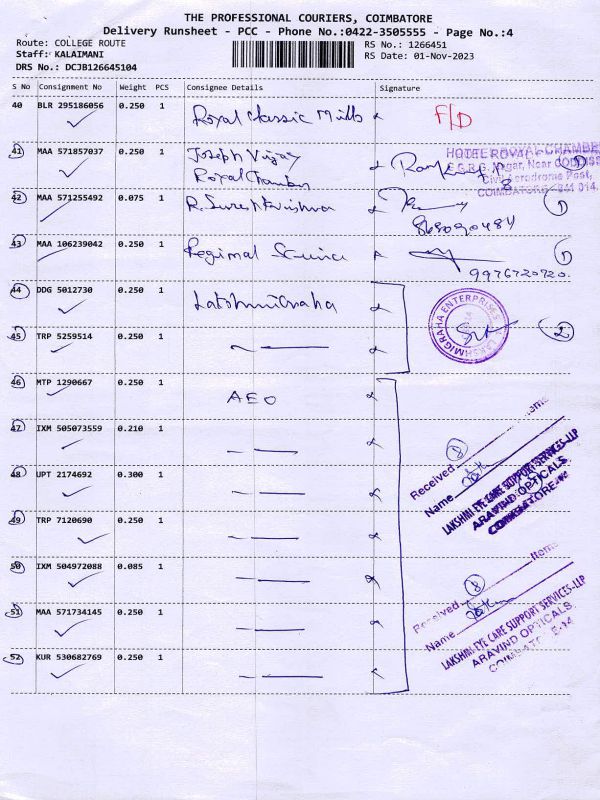 THE PROFESSIONAL COURIERS, COIMBATORE
Delivery Runsheet - PCC - Phone No.:0422-3505555 - Page No.:4
Route: COLLEGE ROUTE
RS No.: 1266451
Staff: KALAIMANI
RS Date: 01-Nov-2023
DRS No.: DCJB126645104
S No Consignment No Weight PCS Consignee Details Signature
40 BLR 295186056 0.250 1 Royal Classic Mills F/D
41 MAA 571857037 0.250 1 Joseph Vijay
Royal Chamber
HOTEL ROYAL CHAMBE
Nagar, Near CODISSIA
Civil Aerodrome Post,
COIMBATORE - 641 014.
42 MAA 571255492 0.075 1 R. Suresh Krishna 1
8680920484
43 MAA 106239042 0.250 1 Regimal Science 1
9976720720.
44 DDG 5012730 0.250 1 Lakshmi Graha
LAKSHMIGRAHA ENTERPRISES
2
45 TRP 5259514 0.250 1 ~ —
46 MTP 1290667 0.250 1 AEO
47 IXM 505073559 0.210 1 — —
Received 8 Items
Name
LAKSHMI EYE CARE SUPPORT SERVICES-LLP
ARAVIND OPTICALS
COIMBATORE-14
48 UPT 2174692 0.300 1 — —
49 TRP 7120690 0.250 1 — —
50 IXM 504972088 0.085 1 — —
Received 8 Items
Name
LAKSHMI EYE CARE SUPPORT SERVICES-LLP
ARAVIND OPTICALS
COIMBATORE-14
51 MAA 571734145 0.250 1 — —
52 KUR 530682769 0.250 1 — —